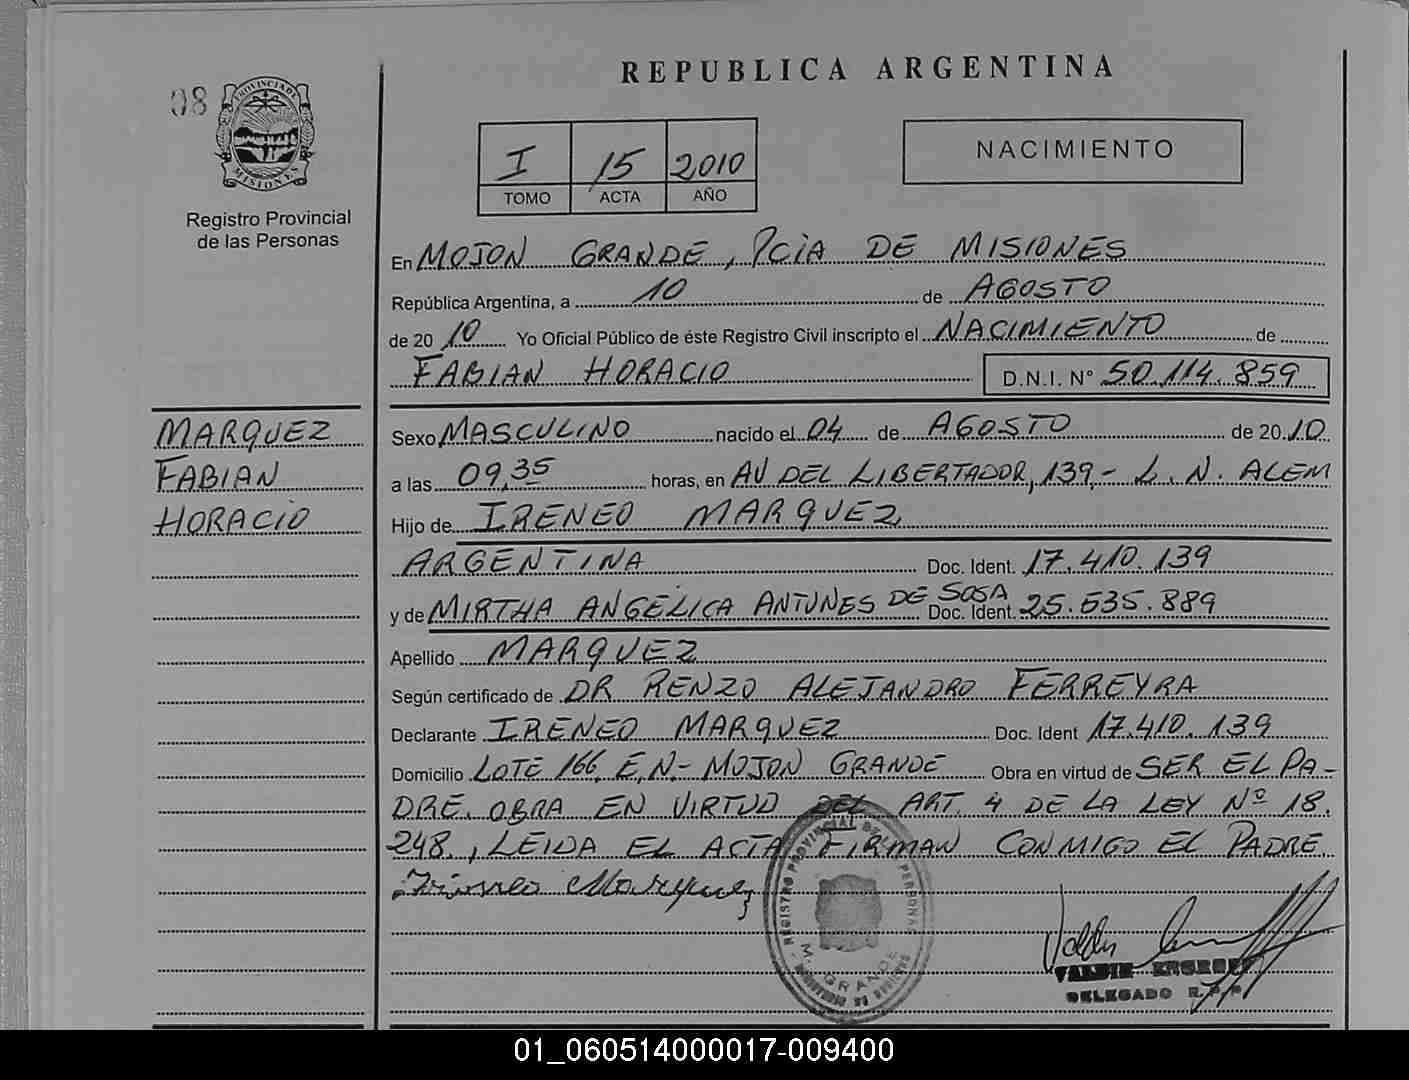 REPUBLICA ARGENTINA
08
PROVINCIA DE
MISIONES
Registro Provincial
de las Personas
I 15 2010
TOMO ACTA AÑO
NACIMIENTO
En MOJON GRANDE, PCIA DE MISIONES
República Argentina, a 10 de AGOSTO
de 20 10 Yo Oficial Público de éste Registro Civil inscripto el NACIMIENTO de
FABIAN HORACIO D.N.I. N° 50.114.859
MARQUEZ
FABIAN
HORACIO
Sexo MASCULINO nacido el 04 de AGOSTO de 20 10
a las 09,35 horas, en AV DEL LIBERTADOR, 139,- L. N. ALEM
Hijo de IRENEO MARQUEZ,
ARGENTINA Doc. Ident. 17.410.139
y de MIRTHA ANGELICA ANTUNES DE SOSA Doc. Ident. 25.635.889
Apellido MARQUEZ
Según certificado de DR RENZO ALEJANDRO FERREYRA
Declarante IRENEO MARQUEZ Doc. Ident 17.410.139
Domicilio LOTE 166, E,N- MOJON GRANDE Obra en virtud de SER EL PA-
DRE. OBRA EN VIRTUD DEL ART. 4 DE LA LEY Nº 18.
248., LEIDA EL ACTA FIRMAN CONMIGO EL PADRE.
REGISTRO PROVINCIAL DE LAS PERSONAS
M. GRANDE
DELEGADO R.P.P.
01_060514000017-009400